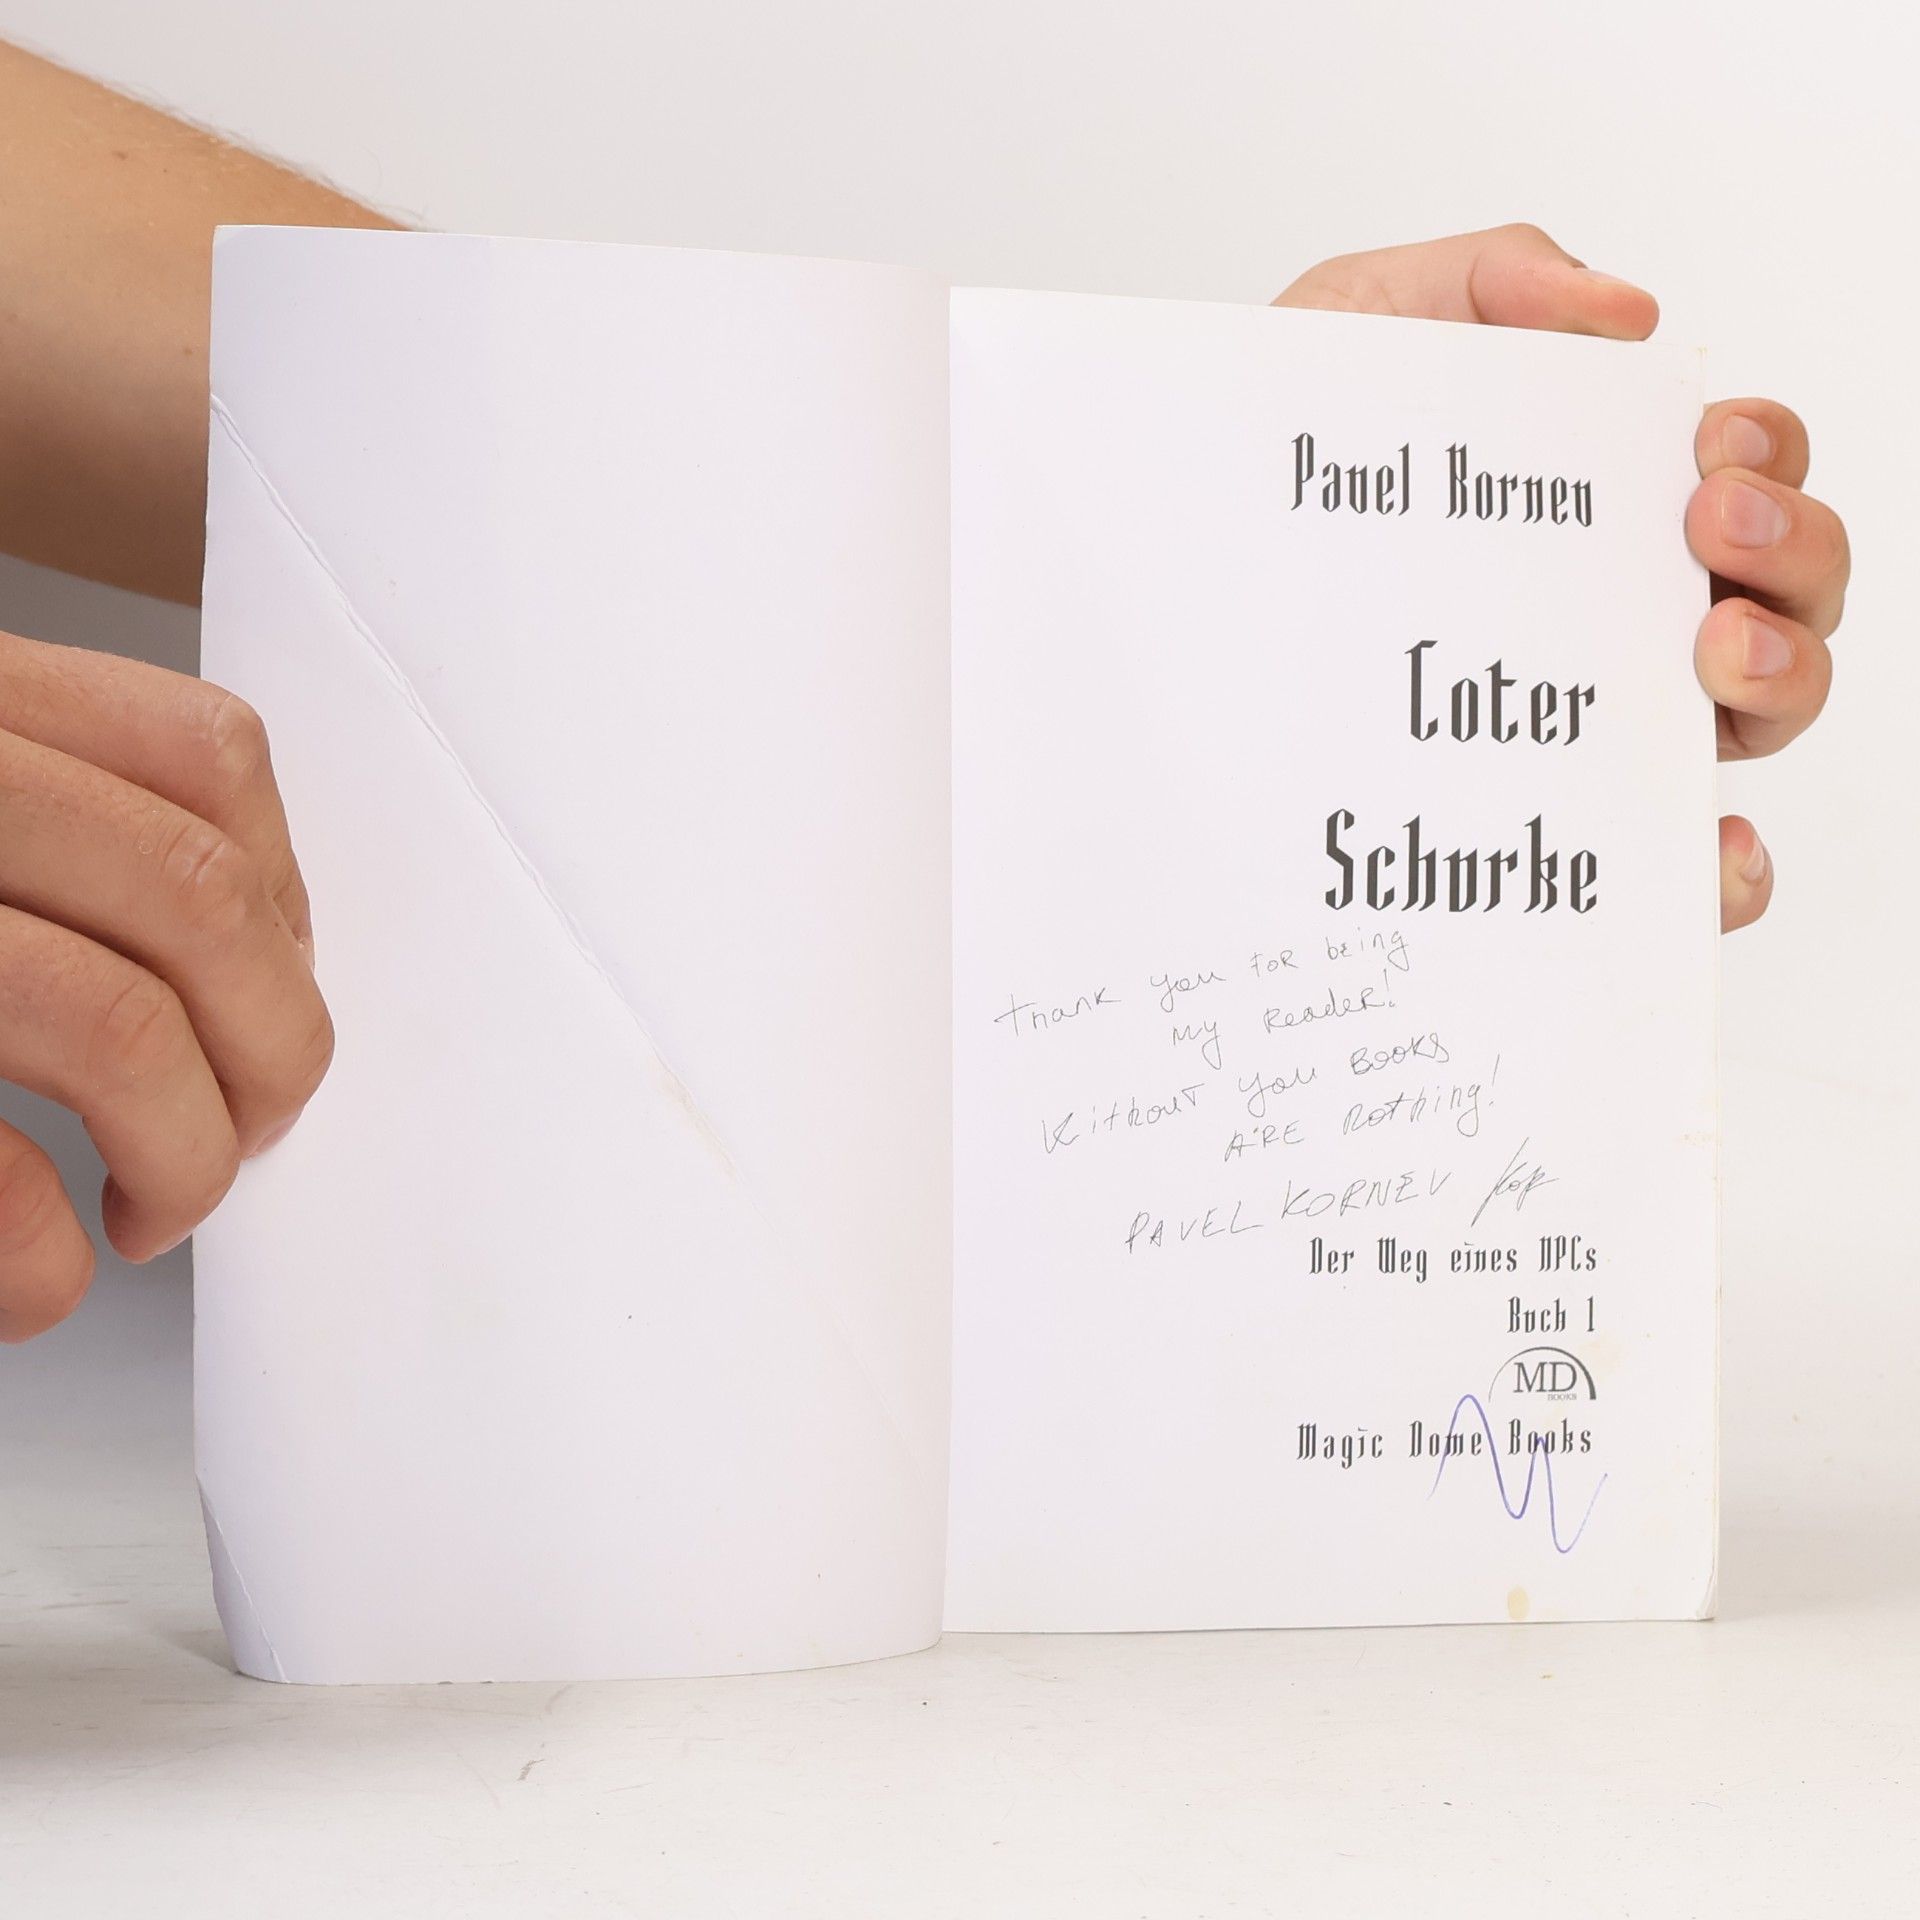 Pavel Kornev
Toter
Schurke
Thank you for being
my reader!
Without you books
are nothing!
PAVEL KORNEV
Der Weg eines NPCs
Buch 1
MD
BOOKS
Magic Dome Books